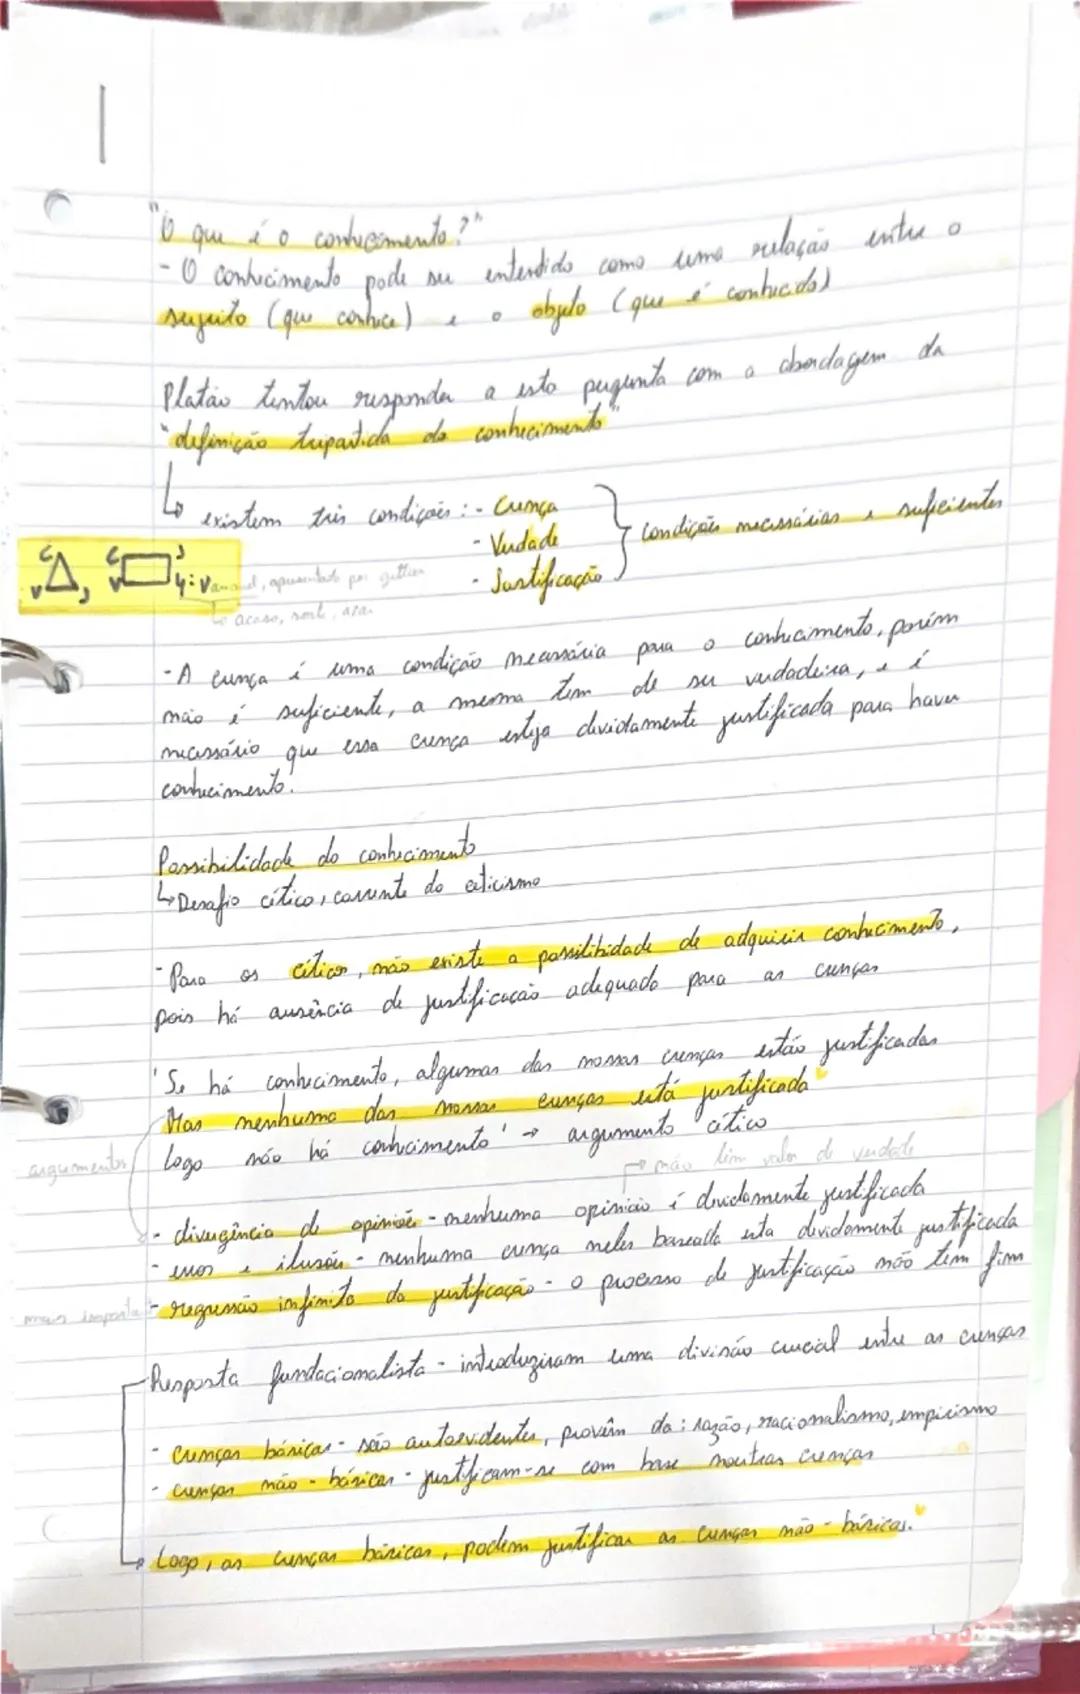 "O que é o conhecimento?"
- O conhecimento pode ser entendido como uma relação entre o
sujeito (que conhece) e o objeto (que é conhecido)
Platão tentou responder a esta pergunta com a abordagem da
"definição tripartida do conhecimento"
↳ existem três condições: - Crença
- Verdade
- Justificação
} condições necessárias e suficientes
C V J, C J V 4:
, apresentado por gettier
↳ acaso, sorte, azar
- A crença é uma condição necessária para o conhecimento, porém
não é suficiente, a mesma tem de ser verdadeira, e é
necessário que essa crença esteja devidamente justificada para haver
conhecimento.
Possibilidade do conhecimento
↳ Desafio cético, corrente do ceticismo
- Para os céticos, não existe a possilibidade de adquirir conhecimento,
pois há ausência de justificação adequada para as crenças
'Se há conhecimento, algumas das nossas crenças estão justificadas
Mas nenhuma das nossas crenças está justificada
Logo não há conhecimento' → argumento cético
argumentos
→ não têm valor de verdade
- divergência de opiniões - nenhuma opinião é devidamente justificada
- erros e ilusões - nenhuma crença neles baseada esta devidamente justificada
mais importante - regressão infinita da justificação - o processo de justificação não tem fim
Resposta fundacionalista - introduziram uma divisão crucial entre as crenças
- crenças básicas - são autoevidentes, provêm da: razão, racionalismo, empirismo
- crenças não-básicas - justificam-se com base noutras crenças
→ Logo, as crenças básicas, podem justificar as crenças não-básicas.